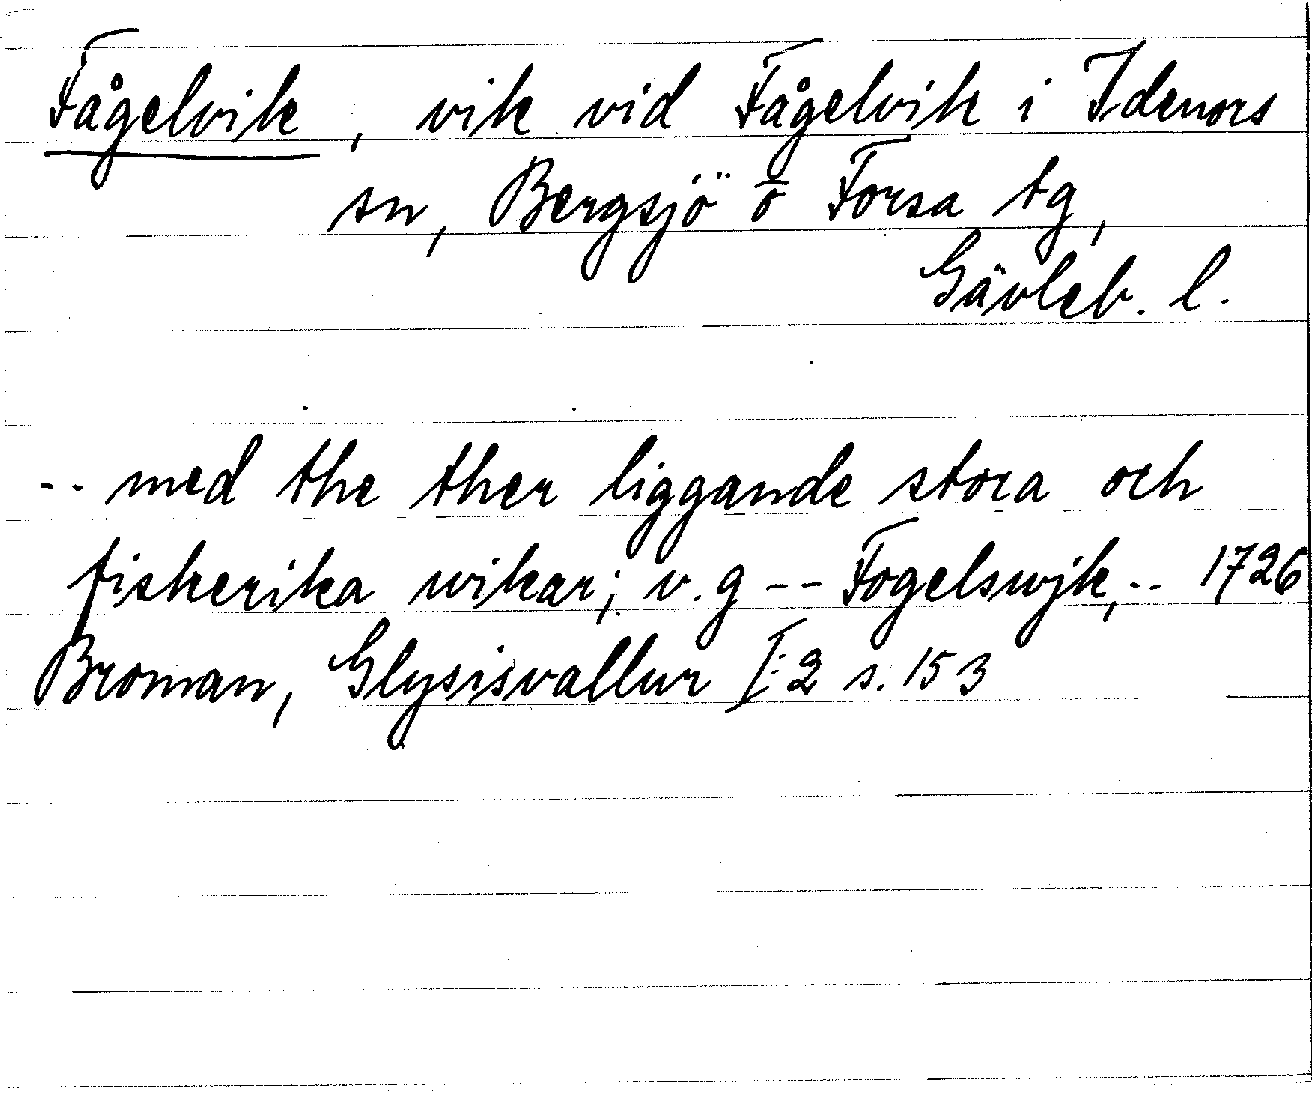 Fågelvik, vik vid Fågelvik i Idenors
sn, Bergsjö o Forsa tg,
Gävleb. l.
-- med the ther liggande stora och
fiskerika wikar; v.g -- Fogelswjk, -- 1726
Broman, Glysisvallur I:2 s. 153